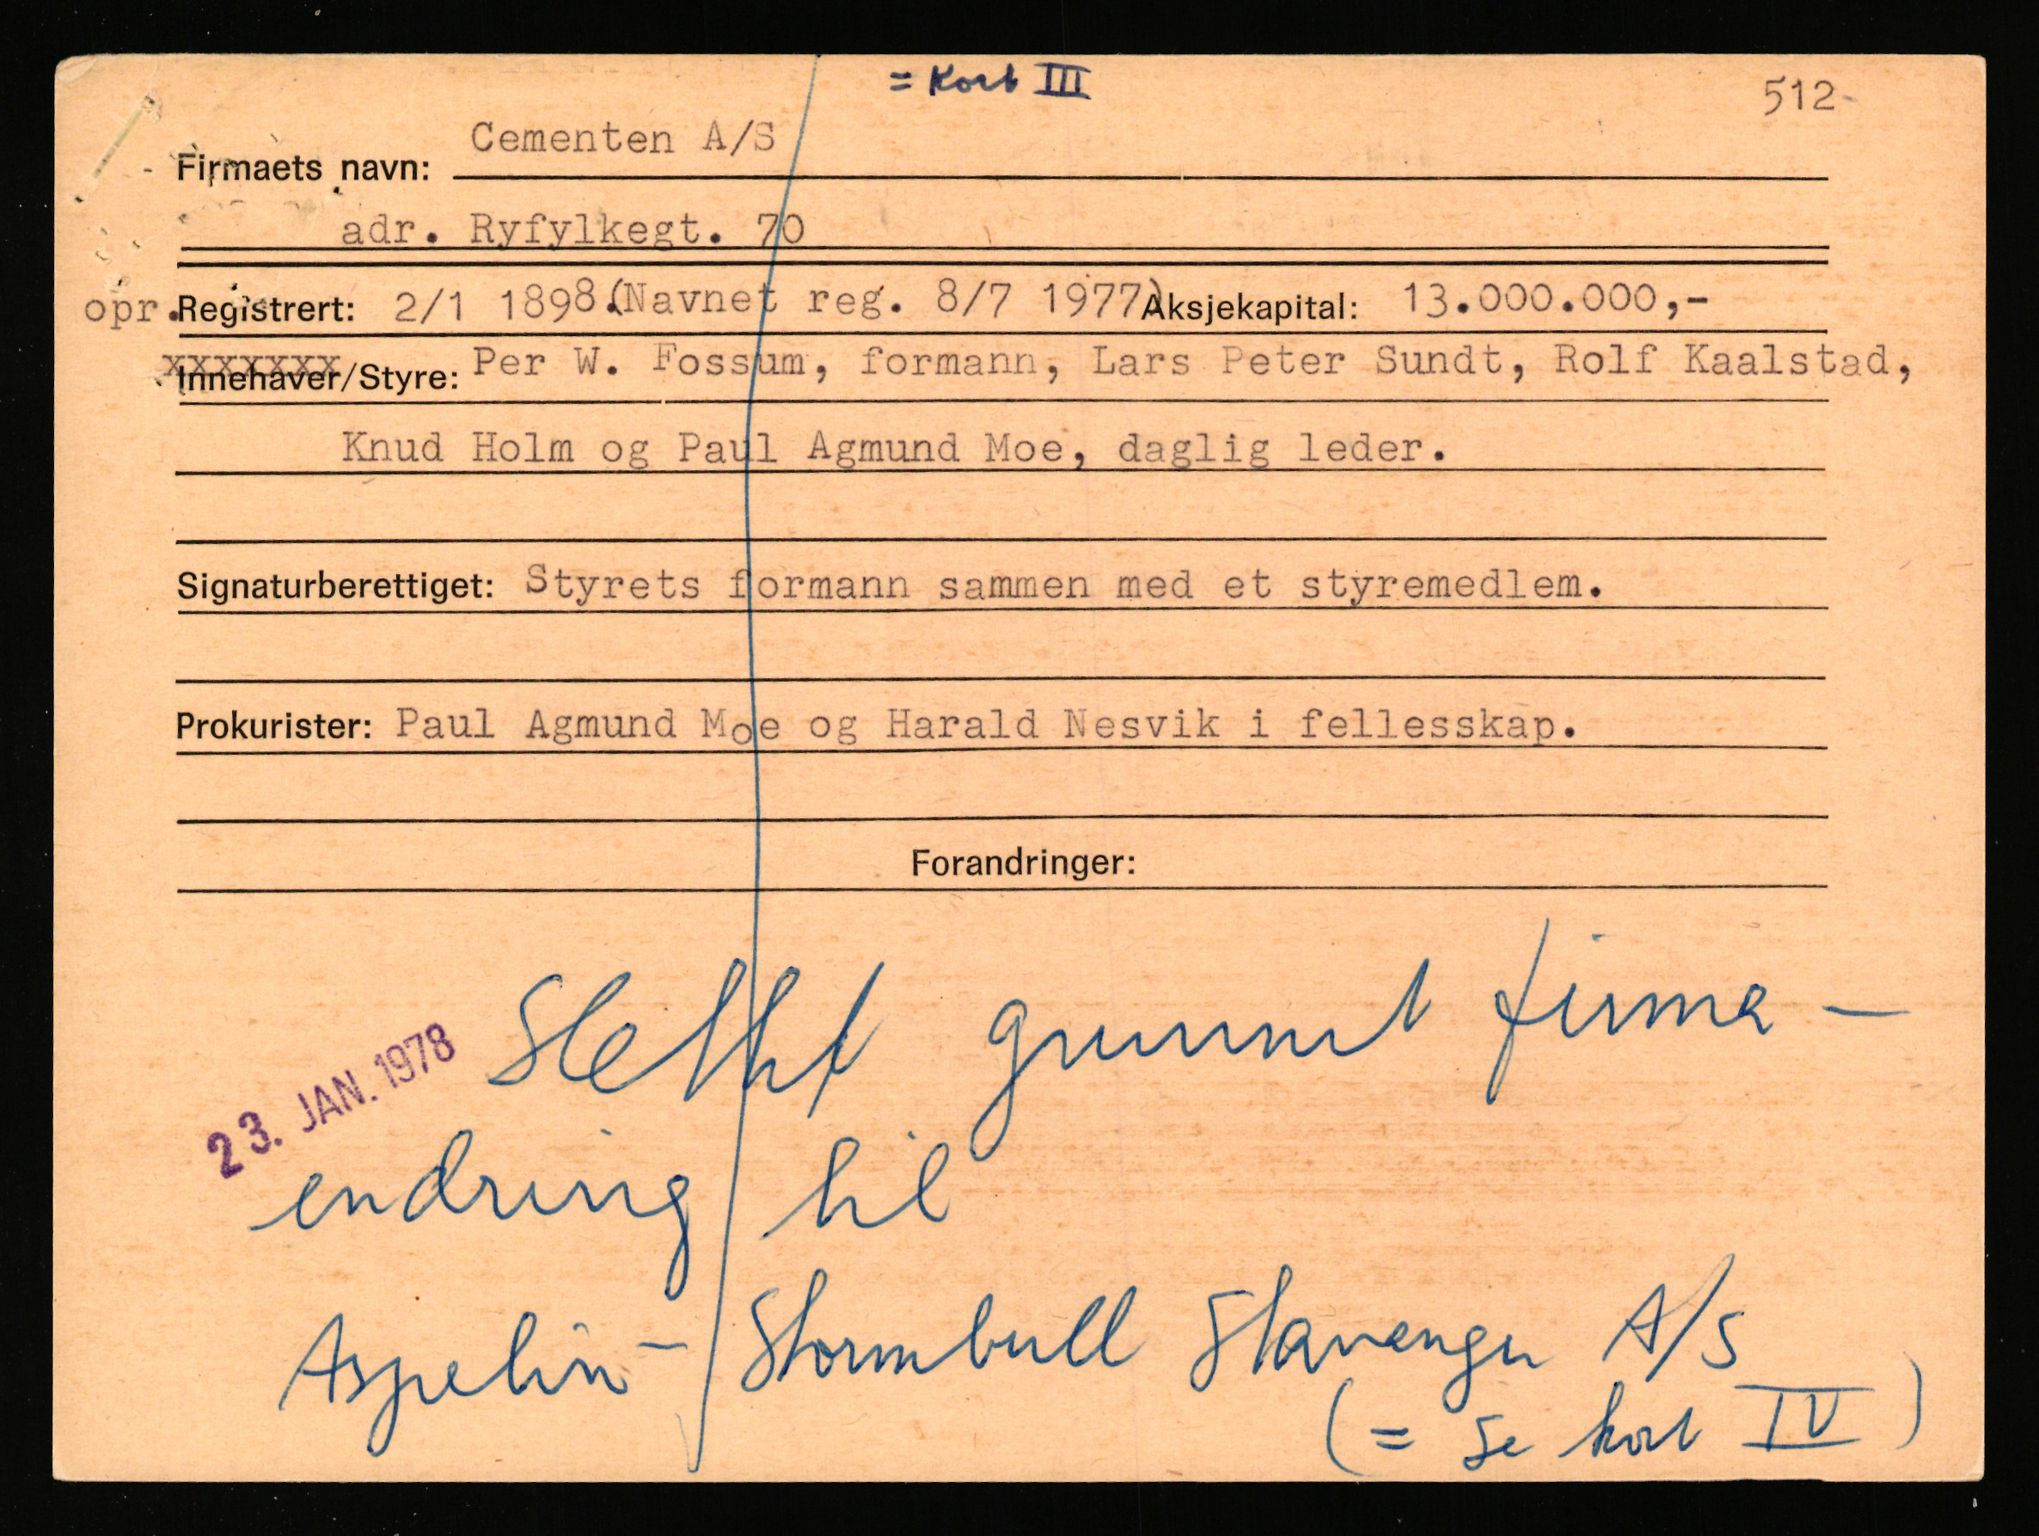 = Kort III
512
Firmaets navn: Cementen A/S
adr. Ryfylkegt. 70
opr. Registrert: 2/1 1898.(Navnet reg. 8/7 1977) Aksjekapital: 13.000.000,-
xxxxxxx
Innehaver/Styre: Per W. Fossum, formann, Lars Peter Sundt, Rolf Kaalstad,
Knud Holm og Paul Agmund Moe, daglig leder.
Signaturberettiget: Styrets formann sammen med et styremedlem.
Prokurister: Paul Agmund Moe og Harald Nesvik i fellesskap.
Forandringer:
Slettet grunnet firma-
23. JAN. 1978
endring til
Aspelin- Stormbull Stavanger A/S
(= se kort IV)